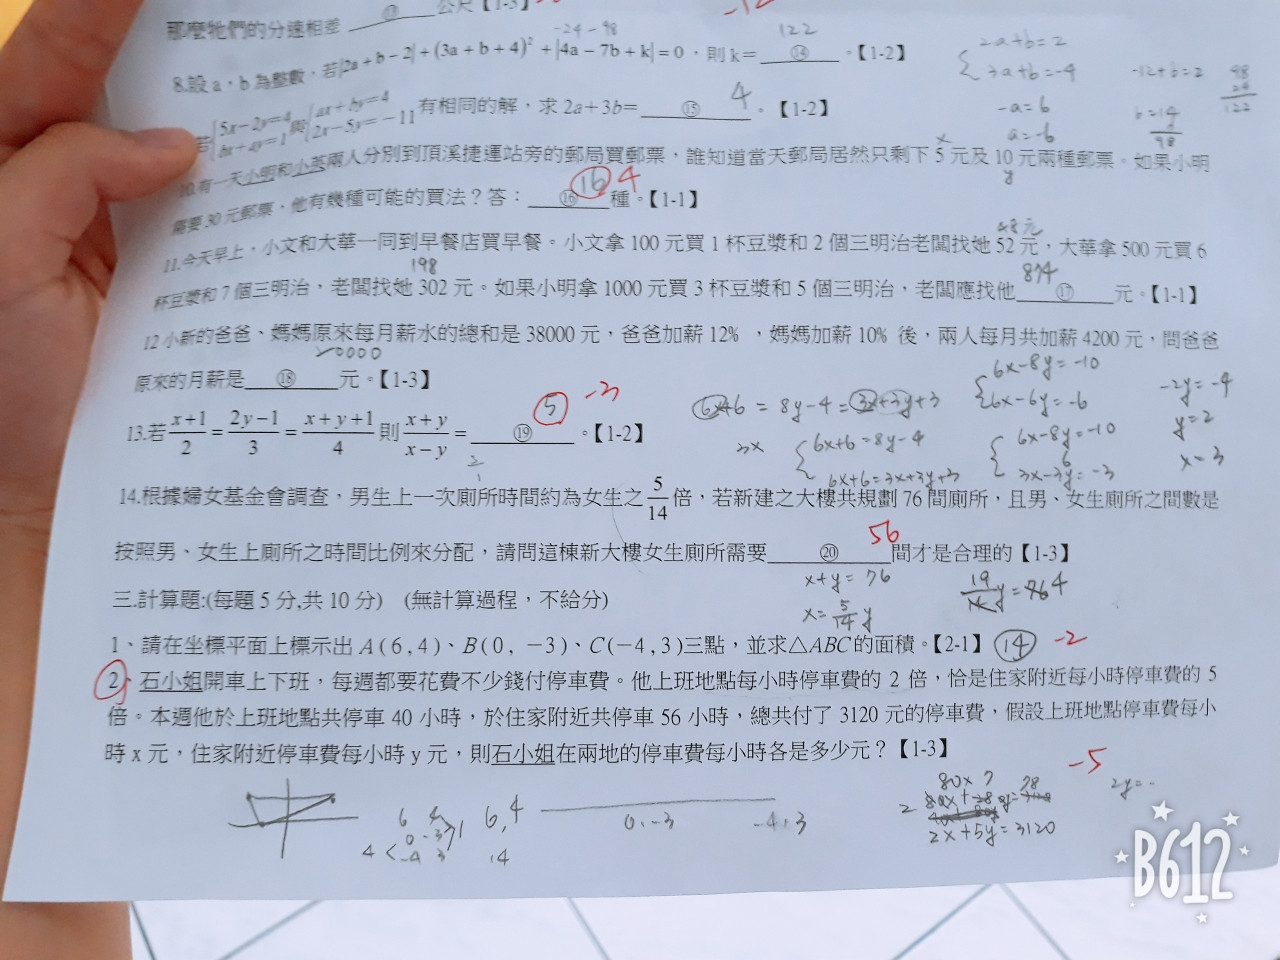 那麼牠們的分速相差 ⑬ 公尺【1-3】
-24-98
122
8.設 a、b 為整數，若|2a+b-2|+(3a+b+4)²+|4a-7b+k|=0，則 k= ⑭ 。【1-2】
2a+b=2
3a+b=-4
-a=6
a=-6
-12+b=2
b=14
98
98
24
122
若{5x-2y=4 bx+ay=1 與{ax+by=4 2x-5y=-11 有相同的解，求 2a+3b= ⑮ 。【1-2】
4
10.有一天小明和小英兩人分別到頂溪捷運站旁的郵局買郵票，誰知道當天郵局居然只剩下 5 元及 10 元兩種郵票。如果小明
x
y
需要 30 元郵票，他有幾種可能的買法？答： ⑯ 種。【1-1】
16 4
11.今天早上，小文和大華一同到早餐店買早餐。小文拿 100 元買 1 杯豆漿和 2 個三明治老闆找她 52 元，大華拿 500 元買 6
48元
杯豆漿和 7 個三明治，老闆找她 302 元。如果小明拿 1000 元買 3 杯豆漿和 5 個三明治，老闆應找他 ⑰ 元。【1-1】
198
874
12 小新的爸爸、媽媽原來每月薪水的總和是 38000 元，爸爸加薪 12% ，媽媽加薪 10% 後，兩人每月共加薪 4200 元，問爸爸
原來的月薪是 ⑱ 元。【1-3】
20000
13.若 x+1/2 = 2y-1/3 = x+y+1/4 則 x+y/x-y = ⑲ 。【1-2】
5 -3
6x+6 = 8y-4 = 3x+3y+3
3x
6x+6=8y-4
6x+6=3x+3y+3
6x-8y=-10
6x-6y=-6
6x-8y=-10
3x-3y=-3
6
-2y=-4
y=2
x=3
14.根據婦女基金會調查，男生上一次廁所時間約為女生之 5/14 倍，若新建之大樓共規劃 76 間廁所，且男、女生廁所之間數是
按照男、女生上廁所之時間比例來分配，請問這棟新大樓女生廁所需要 ⑳ 間才是合理的【1-3】
56
x+y=76
x=5/14 y
19/14 y=76 4
三.計算題:(每題 5 分,共 10 分) (無計算過程，不給分)
1、請在坐標平面上標示出 A(6,4)、B(0, -3)、C(-4,3)三點，並求△ABC的面積。【2-1】
14 -2
2、石小姐開車上下班，每週都要花費不少錢付停車費。他上班地點每小時停車費的 2 倍，恰是住家附近每小時停車費的 5
倍。本週他於上班地點共停車 40 小時，於住家附近共停車 56 小時，總共付了 3120 元的停車費，假設上班地點停車費每小
時 x 元，住家附近停車費每小時 y 元，則石小姐在兩地的停車費每小時各是多少元？【1-3】
-5
6 4
0 -3
-4 3
4
6,4
14
0,-3
-4,3
2x+5y=3120
2y=-
B612